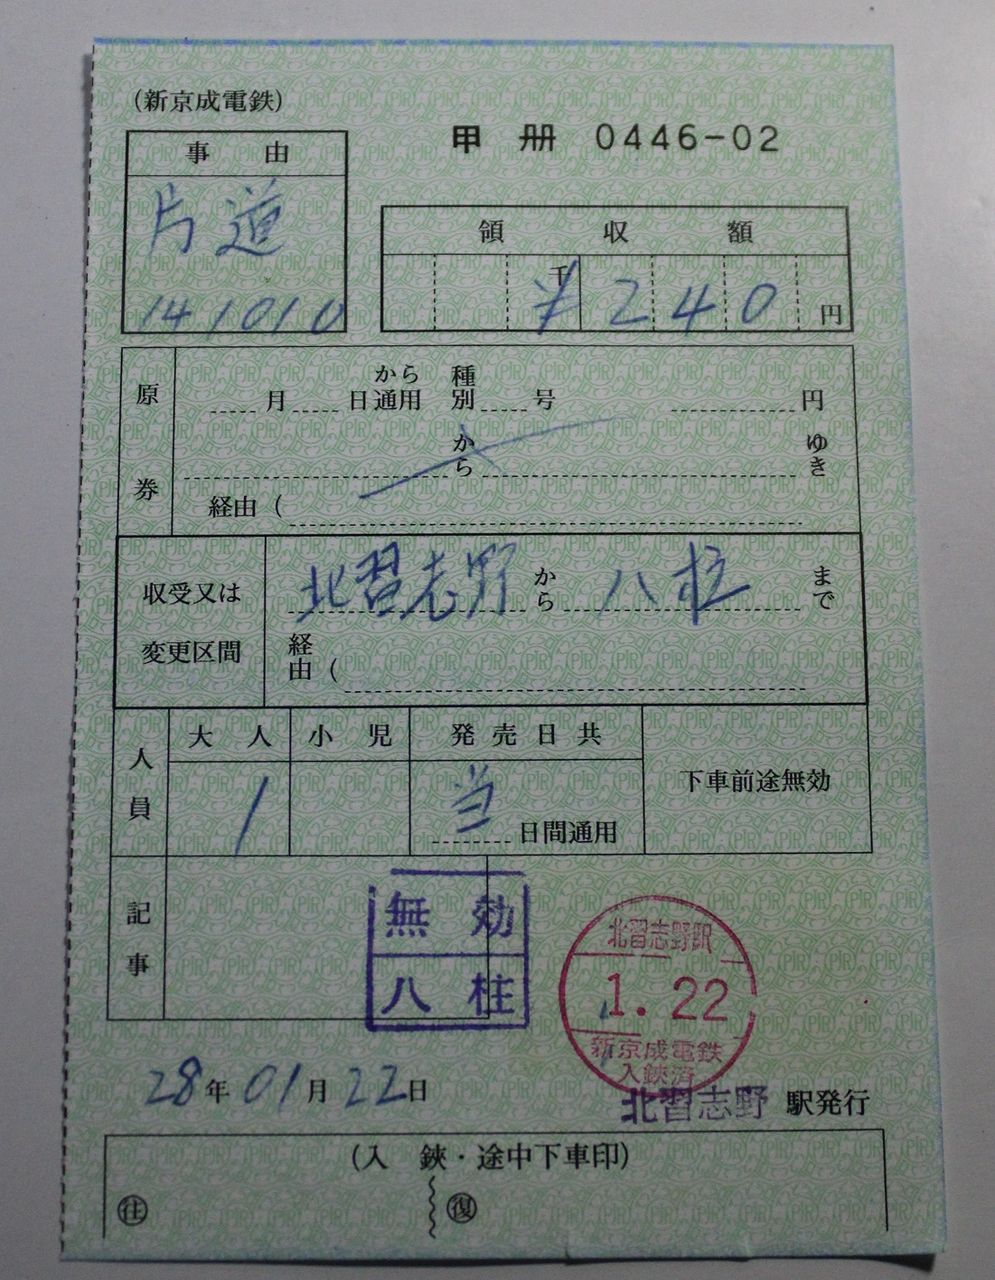 (新京成電鉄)
甲 册 0446-02
事由
片道
141010
領収額
千
¥240円
原券
月 日から通用 種別 号 円
から ゆき
経由(
収受又は変更区間
北習志野から八柱まで
経由(
人員
大人 小児 発売日共
1 当日間通用
下車前途無効
記事
無効
八柱
北習志野駅
1.22
新京成電鉄
入鋏済
28年01月22日
北習志野 駅発行
(入鋏・途中下車印)
往 復